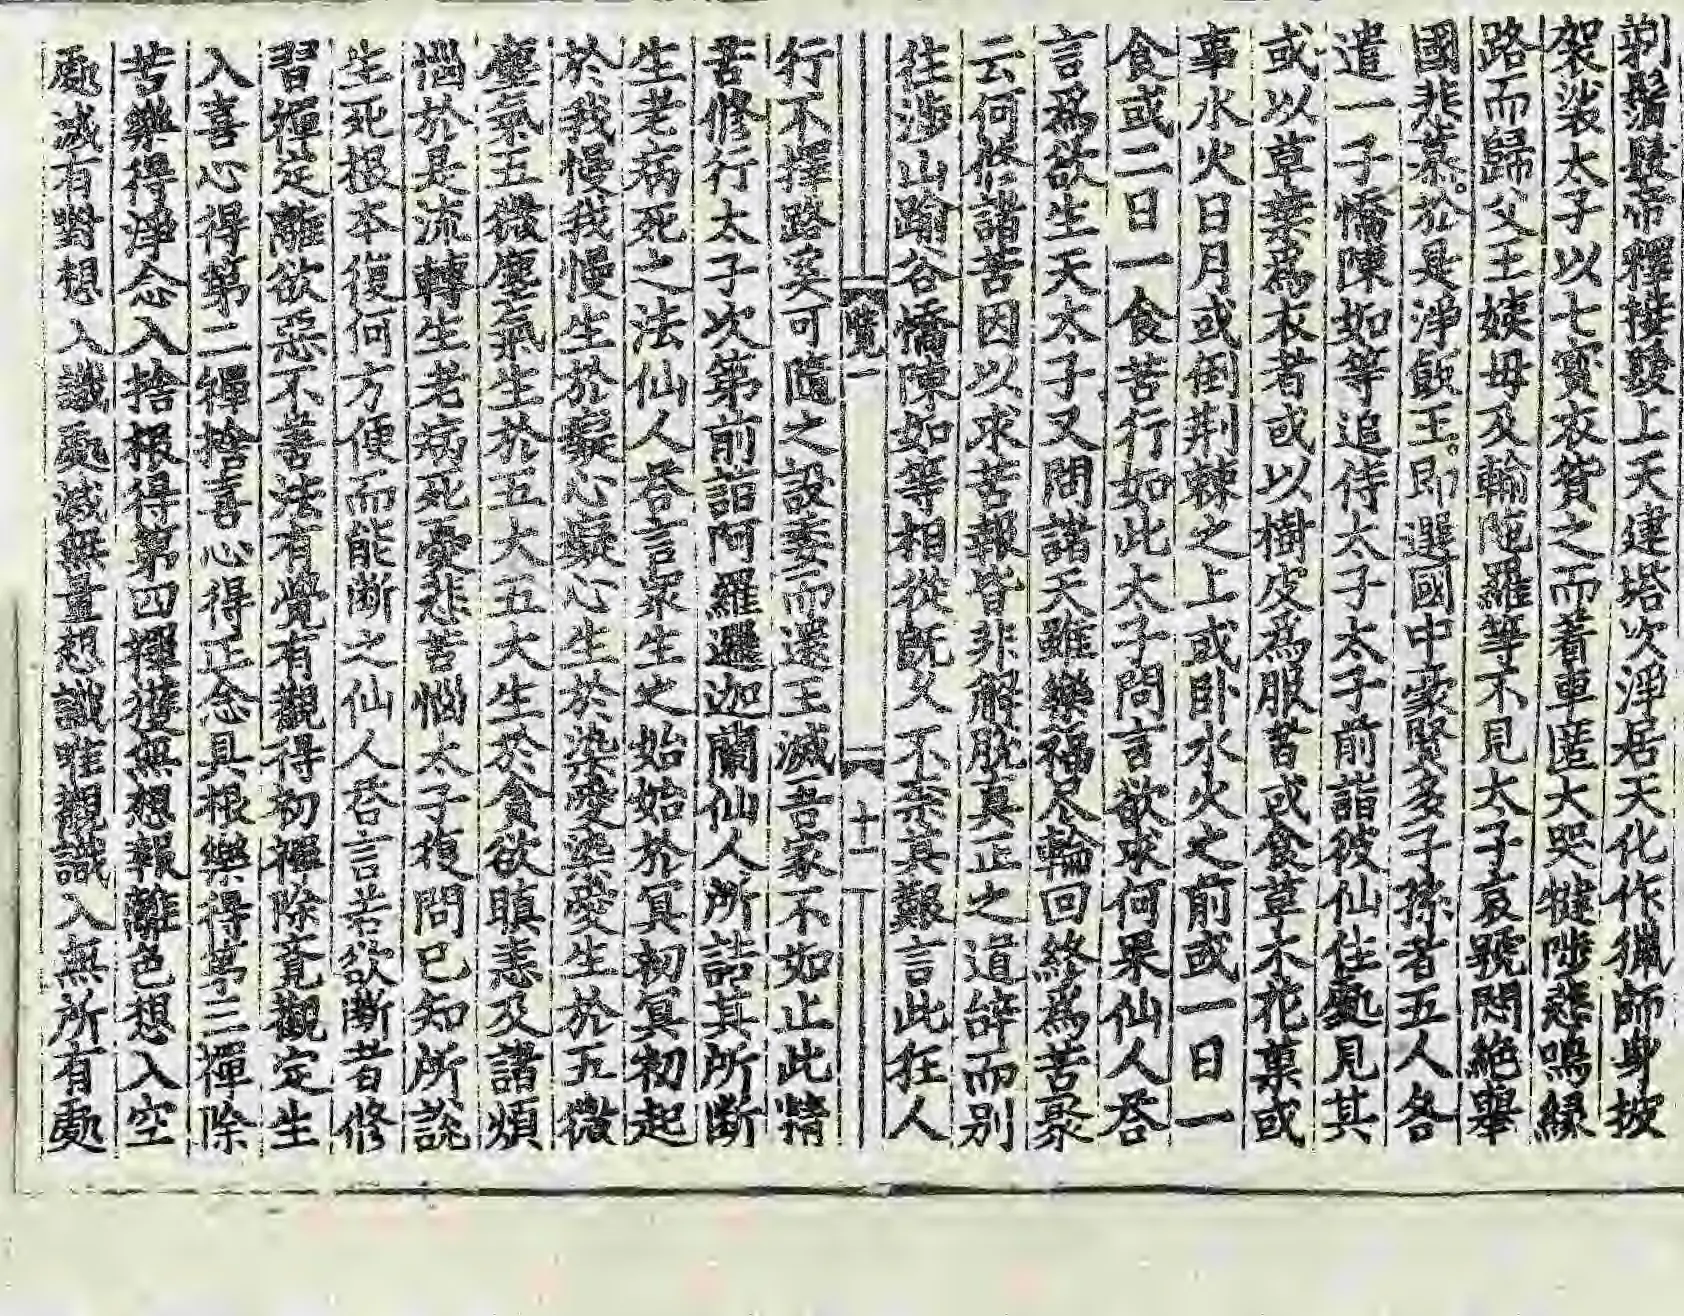 剃鬚髮帝釋接髮上天建塔次淨居天化作獵師身披
袈裟太子以七寳衣貿之而着車匿大哭犍陟悲鳴緣
路而歸父王姨母及輸陁羅等不見太子哀號悶絶舉
國悲慕於是淨飯王即選國中豪賢多子孫者五人各
遣一子憍陳如等追侍太子太子前詣彼仙住處見其
或以草葉爲衣者或以樹皮爲服者或食草木花菓或
事水火日月或倒荆棘之上或卧水火之前或一日一
食或二日一食苦行如此太子問言欲求何果仙人荅
言爲欲生天太子又問諸天雖樂福盡輪回終爲苦聚
云何修諸苦因以求苦報皆非解脫真正之道辞而別
往涉山踰谷憍陳如等相從旣久不柰其艱言此狂人
覽一
十一
行不擇路奚可隨之設委而還王滅吾家不如止此精
苦修行太子次第前詣阿羅邏迦蘭仙人所詰其所断
生老病死之法仙人荅言衆生之始始於冥初冥初起
於我慢我慢生於癡心癡心生於染愛染愛生於五微
塵氣五微塵氣生於五大五大生於貪欲瞋恚及諸煩
惱於是流轉生老病死憂悲苦惱太子復問已知所說
生死根本復何方便而能断之仙人荅言若欲斷者修
習禪定離欲惡不善法有覺有觀得初禪除覺觀定生
入喜心得第二禪捨喜心得正念具根樂得第三禪除
苦樂得淨念入捨根得第四禪獲無想報離色想入空
處滅有對想入識處滅無量想識唯觀識入無所有處